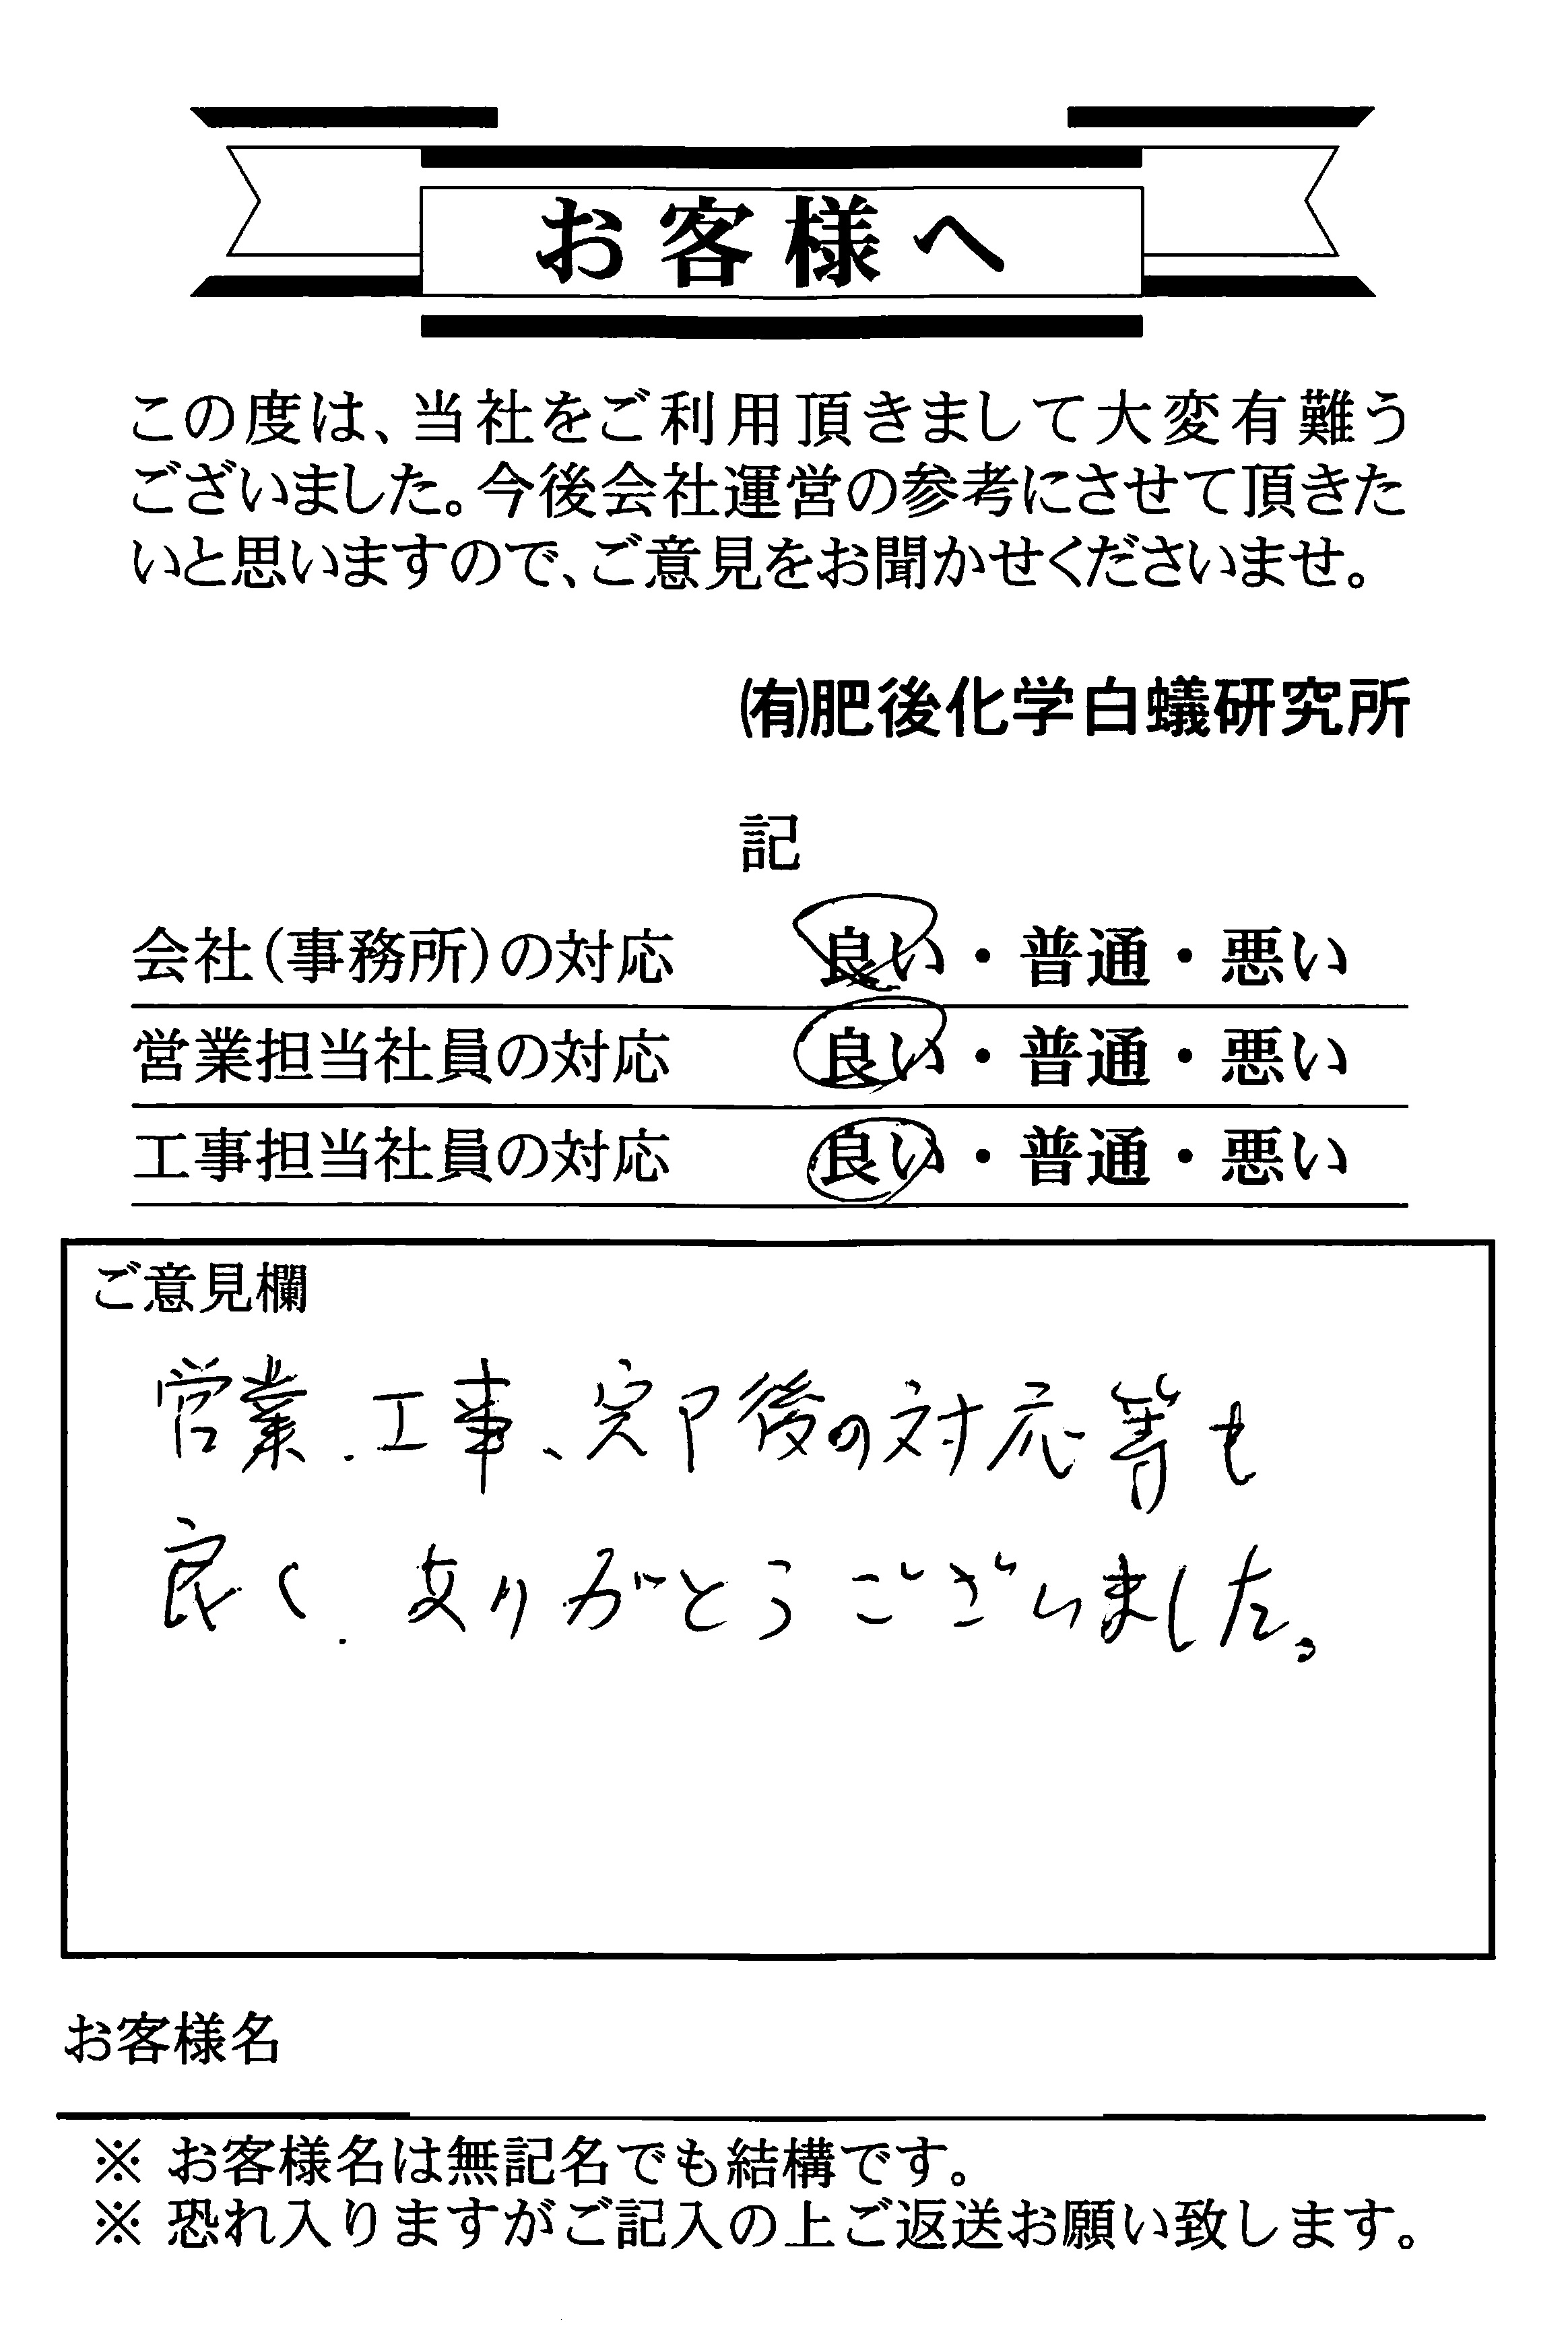 お客様へ
この度は、当社をご利用頂きまして大変有難う
ございました。今後会社運営の参考にさせて頂きた
いと思いますので、ご意見をお聞かせくださいませ。
㈲肥後化学白蟻研究所
記
会社(事務所)の対応 良い・普通・悪い
営業担当社員の対応 良い・普通・悪い
工事担当社員の対応 良い・普通・悪い
ご意見欄
営業、工事、完了後の対応等も
良く、ありがとうございました。
お客様名
※ お客様名は無記名でも結構です。
※ 恐れ入りますがご記入の上ご返送お願い致します。